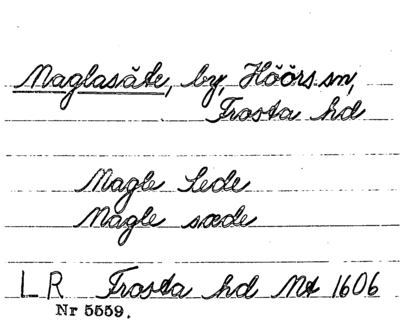 Maglasäte, by, Höörs sn,
Frosta hd
Magle Sede
Magle sæde
LR Frosta hd Mt 1606
Nr 5559.